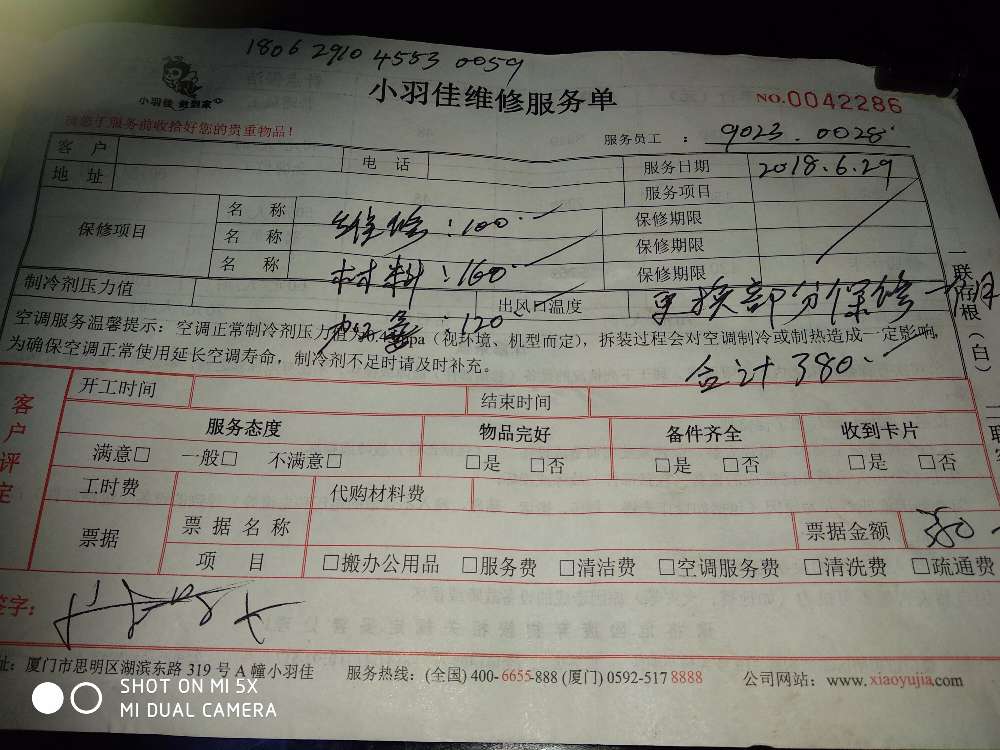 1806 2910 4553 0059
小羽佳 做到家
小羽佳维修服务单
NO.0042286
请您于服务前收拾好您的贵重物品！
服务员工 ： 9023.0028
客 户 电 话 服务日期 2018.6.29
地 址 服务项目
保修项目 名 称 维修：100 保修期限
名 称 保修期限
名 称 材料：160 保修期限
制冷剂压力值 出风口温度 更换部分保修一个月
：120
空调服务温馨提示：空调正常制冷剂压力值为0.4 pa（视环境、机型而定），拆装过程会对空调制冷或制热造成一定影响，
为确保空调正常使用延长空调寿命，制冷剂不足时请及时补充。
合计380
一联存根（白）
客户评定
开工时间 结束时间
服务态度 物品完好 备件齐全 收到卡片
满意□ 一般□ 不满意□ □是 □否 □是 □否 □是 □否
工时费 代购材料费
票据 票 据 名 称 票据金额 380
项 目 □搬办公用品 □服务费 □清洁费 □空调服务费 □清洗费 □疏通费
签字：
址：厦门市思明区湖滨东路 319 号 A 幢小羽佳 服务热线：(全国) 400-6655-888 (厦门) 0592-517 8888 公司网站：www.xiaoyujia.com
SHOT ON MI 5X
MI DUAL CAMERA